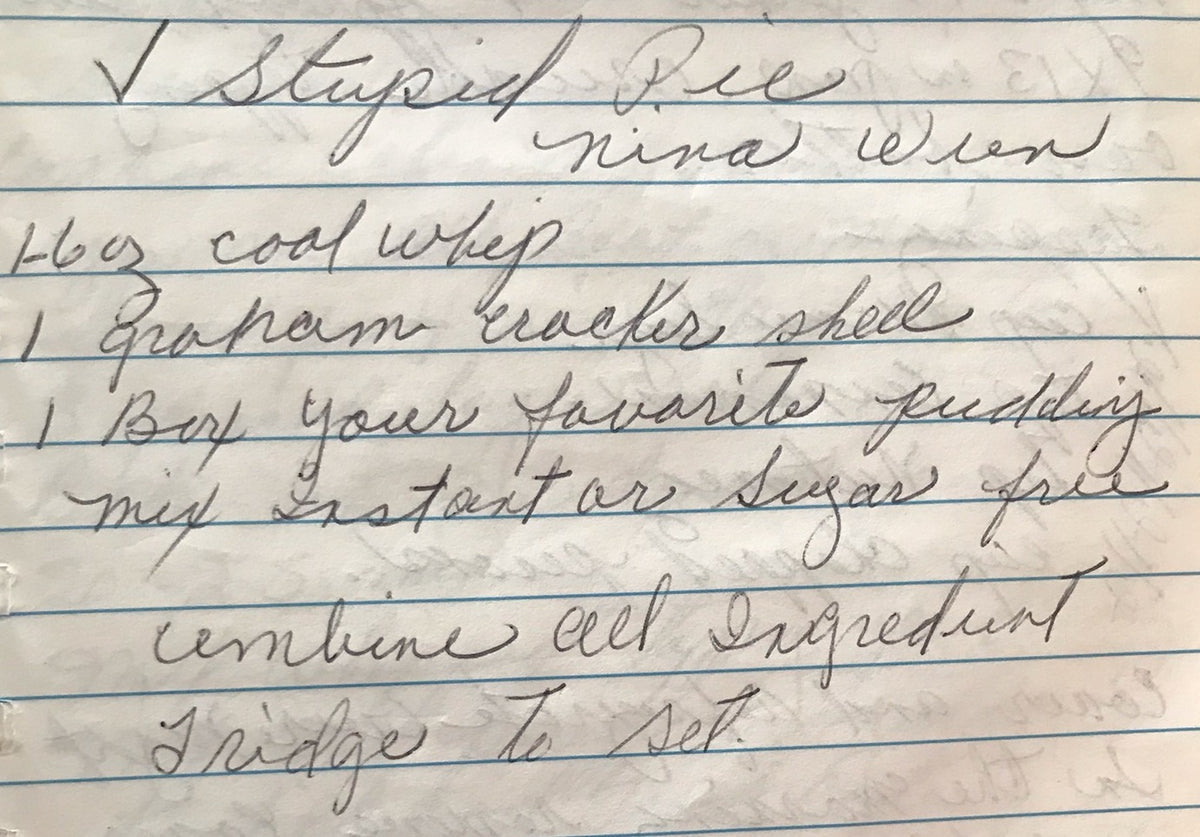 ✓ Stupid Pie
Nina Wren
1-6 oz cool whip
1 Graham cracker shell
1 Box your favorite pudding
mix Instant or Sugar free
combine all Ingredient
Fridge to set.